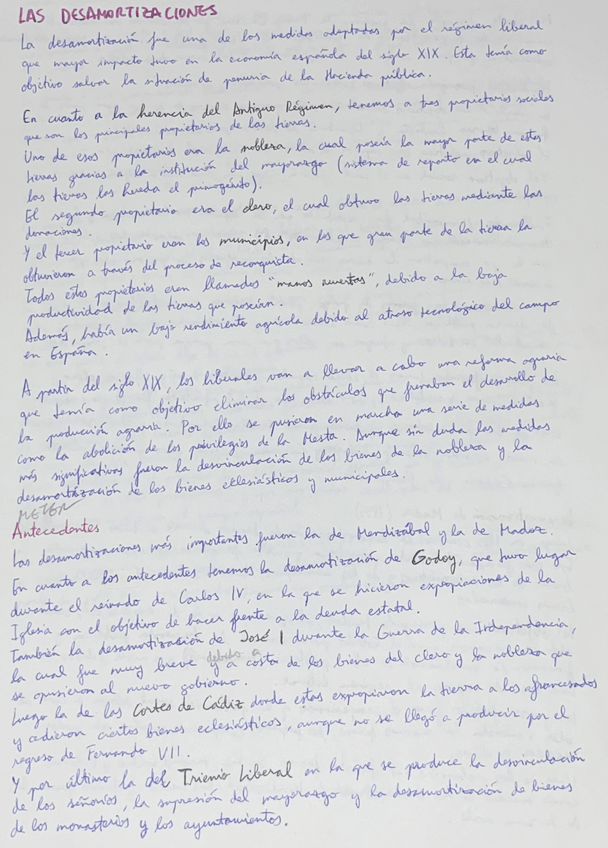 LAS DESAMORTIZACIONES
La desamortización fue una de las medidas adoptadas por el régimen liberal
que mayor impacto tuvo en la economía española del siglo XIX. Esta tenía como
objetivo salvar la situación de penuria de la Hacienda pública.
En cuanto a la herencia del Antiguo Régimen, tenemos a tres propietarios sociales
que son los principales propietarios de las tierras.
Uno de esos propietarios era la nobleza, la cual poseía la mayor parte de estas
tierras gracias a la institución del mayorazgo (sistema de reparto en el cual
las tierras las hereda el primogénito).
El segundo propietario era el clero, el cual obtuvo las tierras mediante las
donaciones.
Y el tercer propietario eran los municipios, en los que gran parte de la tierra la
obtuvieron a través del proceso de reconquista.
Todos estos propietarios eran llamados "manos muertas", debido a la baja
productividad de las tierras que poseían.
Además, había un bajo rendimiento agrícola debido al atraso tecnológico del campo
en España.
A partir del siglo XIX, los liberales van a llevar a cabo una reforma agraria
que tenía como objetivo eliminar los obstáculos que frenaban el desarrollo de
la producción agraria. Por ello se pusieron en marcha una serie de medidas
como la abolición de los privilegios de la Mesta. Aunque sin duda las medidas
más significativas fueron la desvinculación de los bienes de la nobleza y la
desamortización de los bienes eclesiásticos y municipales.
METER
Antecedentes
Las desamortizaciones más importantes fueron la de Mendizábal y la de Madoz.
En cuanto a los antecedentes tenemos la desamortización de Godoy, que tuvo lugar
durante el reinado de Carlos IV, en la que se hicieron expropiaciones de la
Iglesia con el objetivo de hacer frente a la deuda estatal.
También la desamortización de José I durante la Guerra de la Independencia,
la cual fue muy breve debido a y a costa de los bienes del clero y la nobleza que
se opusieron al nuevo gobierno.
Luego la de las Cortes de Cádiz donde estas expropiaron la tierra a los afrancesados
y cedieron ciertos bienes eclesiásticos, aunque no se llegó a producir por el
regreso de Fernando VII.
Y por último la del Trienio Liberal en la que se produce la desvinculación
de los señoríos, la supresión del mayorazgo y la desamortización de bienes
de los monasterios y los ayuntamientos.